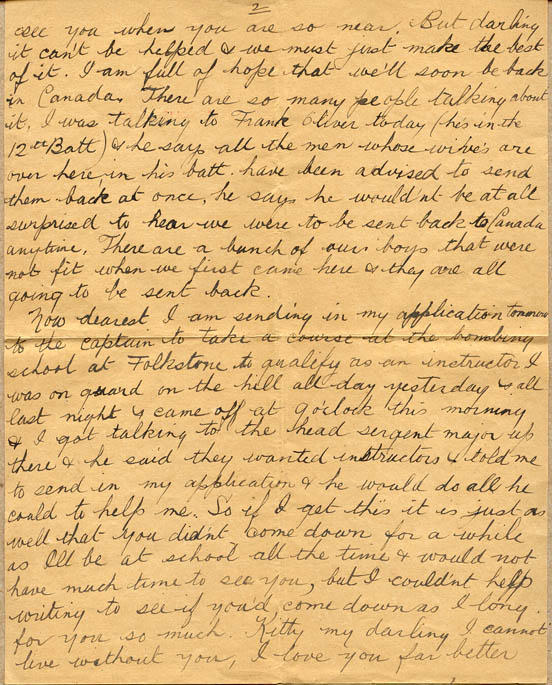 2
see you when you are so near. But darling
it can't be helped & we must just make the best
of it. I am full of hope that we'll soon be back
in Canada. There are so many people talking about
it. I was talking to Frank Oliver today (he's in the
12th Batt) & he says all the men whose wive's are
over here in his batt. have been advised to send
them back at once, he says he wouldn't be at all
surprised to hear we were to be sent back to Canada
anytime. There are a bunch of our boys that were
not fit when we first came here & they are all
going to be sent back.
Now dearest I am sending in my application tomorrow
to the captain to take a course at the bombing
school at Folkstone to qualify as an instructor I
was on guard on the hill all day yesterday & all
last night & came off at 9 o'clock this morning
& I got talking to the head sergent major up
there & he said they wanted instructors & told me
to send in my application & he would do all he
could to help me. So if I get this it is just as
well that you didn't come down for a while
as I'll be at school all the time & would not
have much time to see you, but I couldn't help
writing to see if you'd come down as I long
for you so much. Kitty my darling I cannot
live without you, I love you far better